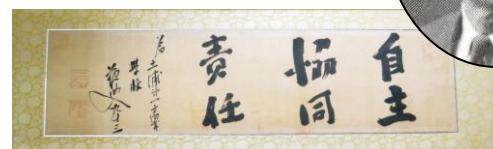 自主
協同
責任
為 土浦第一高等
学校